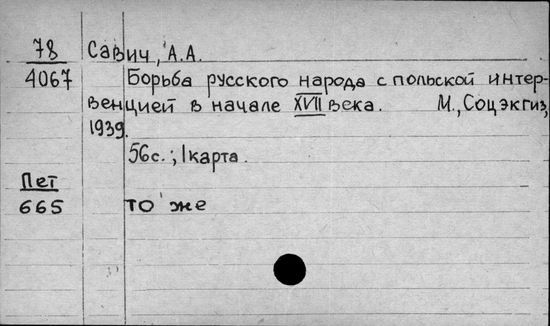 78 Савич, А.А.
4067 Борьба русского народа с польской интер-
венцией в начале XVII века. М., Соцэкгиз,
1939.
56с.; 1 карта.
Пет
665 то же